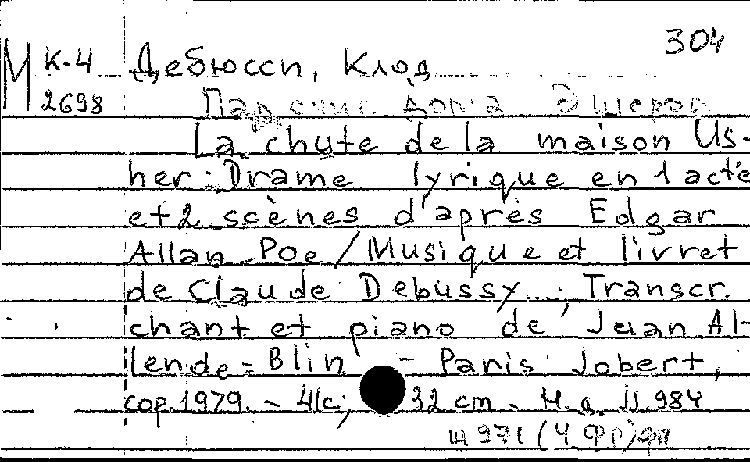 304
М К-4 Дебюсси, Клод
2698 Падение дома Эшеров
La chute de la maison Us-
her: Drame lyrique en 1 acte
et 2 scènes d'après Edgar
Allan Poe / Musique et livret
de Claude Debussy ; Transcr.
chant et piano de Juan Al-
lende-Blin - Paris: Jobert,
cop. 1979. - 41c; 32 cm - Н.д. JJ.984